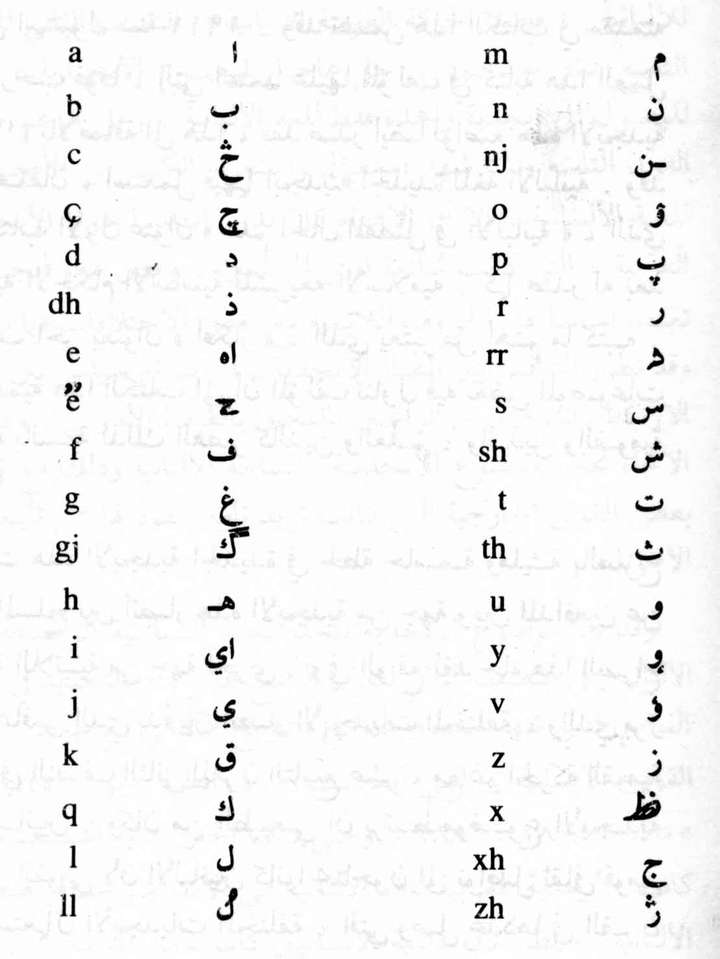 a ا m م
b ب n ن
c څ nj ـن
ç چ o
d د p پ
dh ذ r ر
e اه rr
ë ح s س
f ف sh ش
g غ t ت
gj گ th ث
h هـ u و
i اي y
j ي v ؤ
k ق z ز
q ك x ظ
l ل xh ج
ll zh ژ